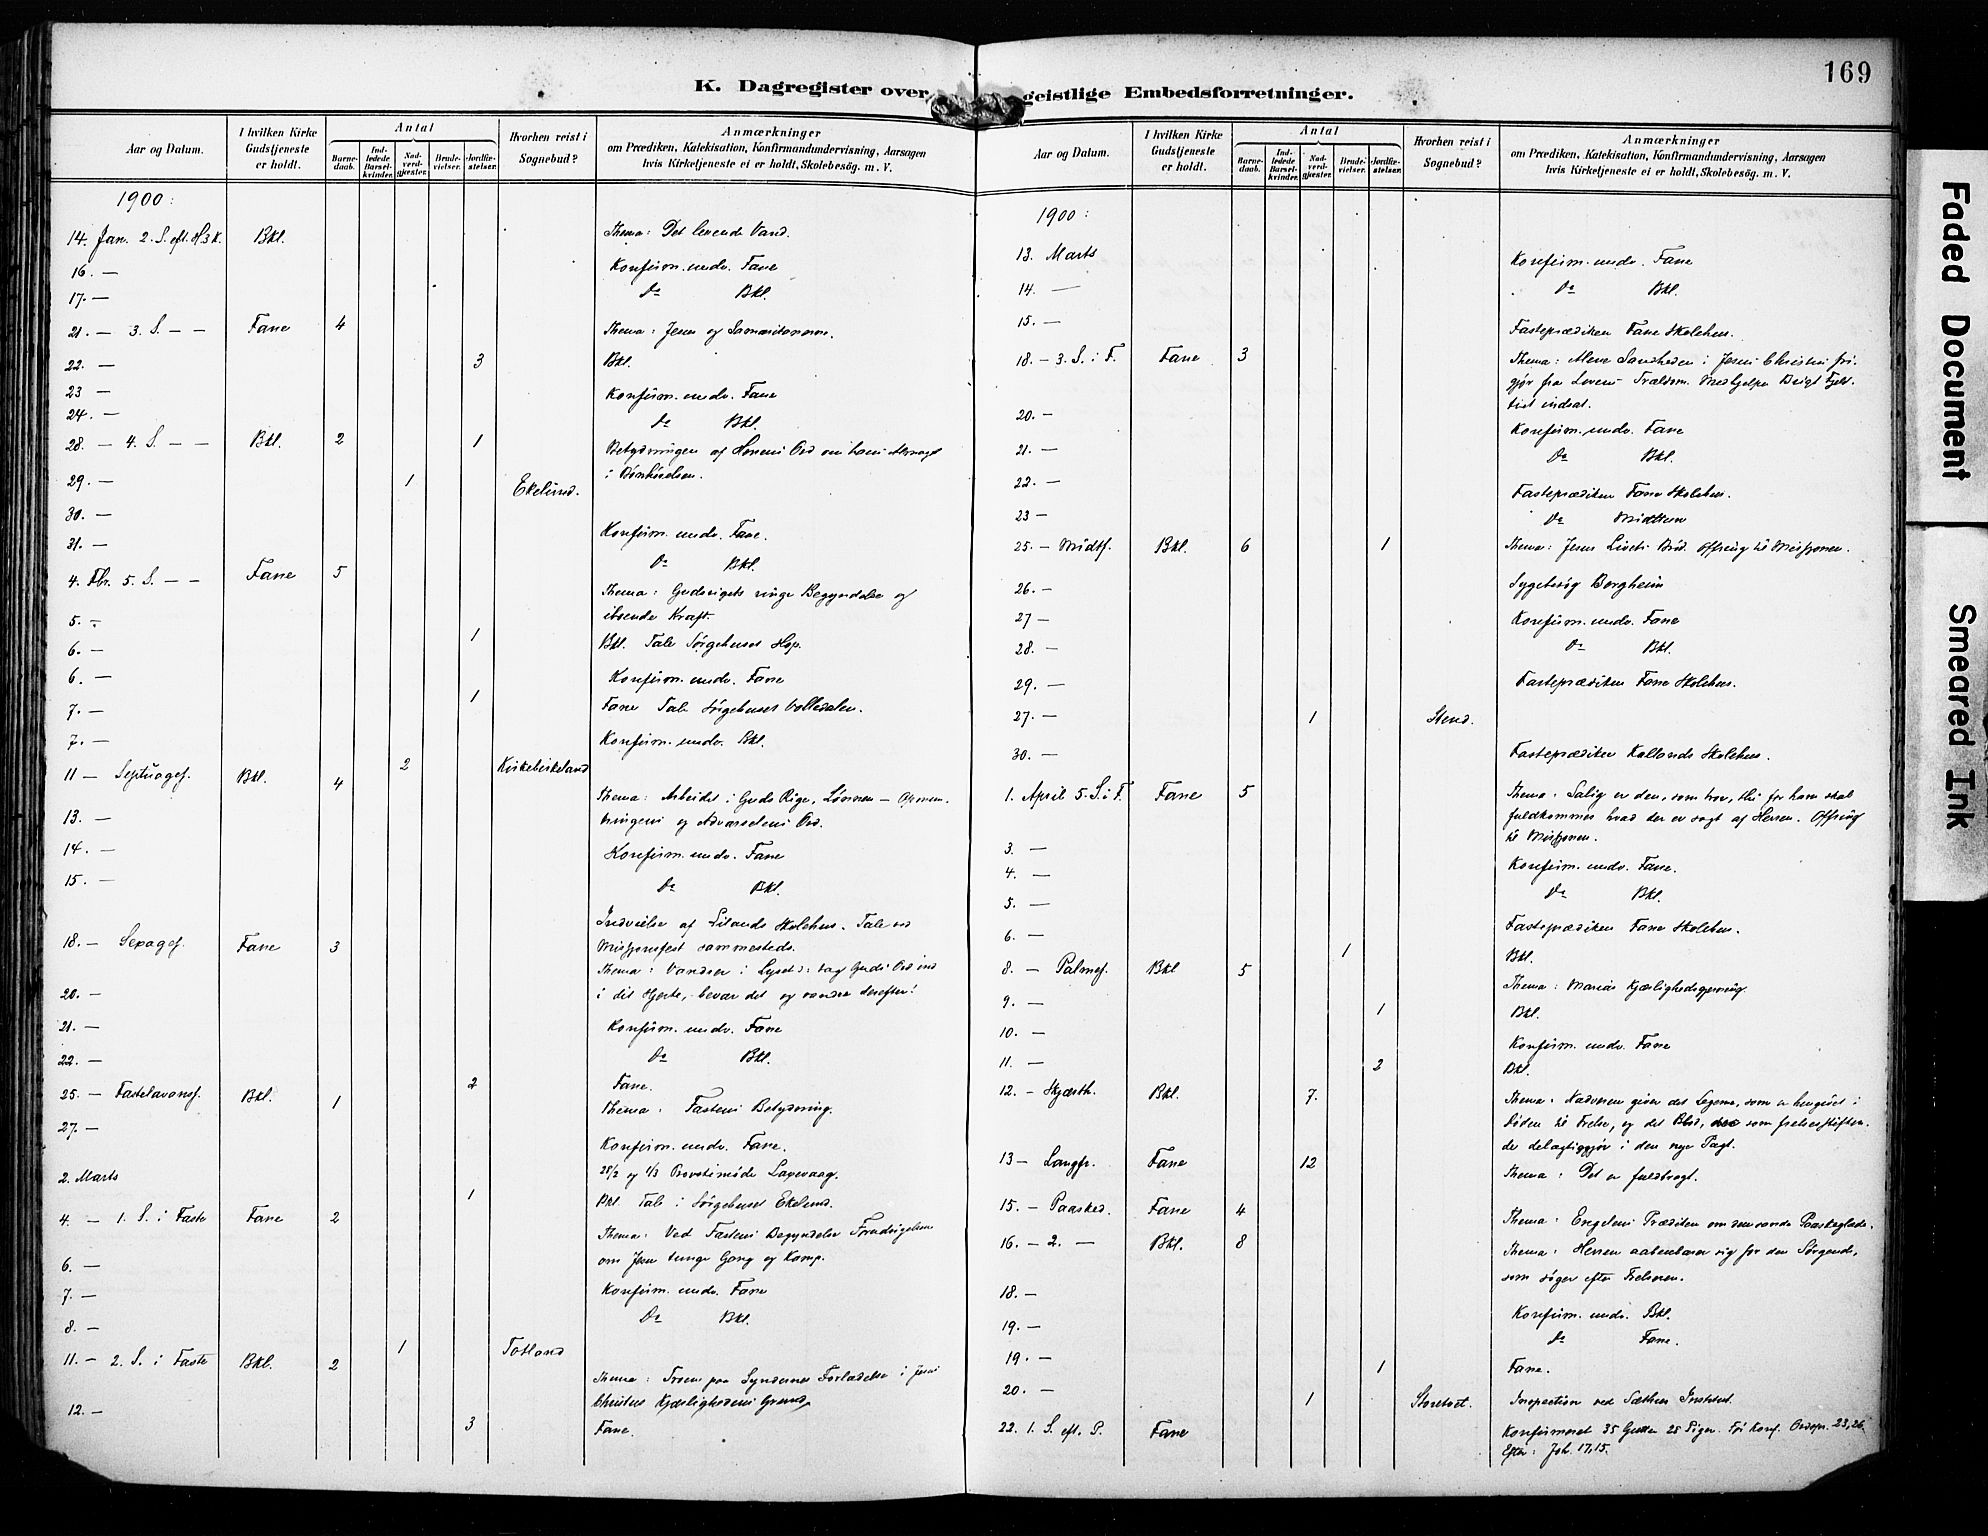 169
K. Dagregister over geistlige Embedsforretninger.
Aar og Datum.
I hvilken Kirke Gudstjeneste er holdt.
Antal
Barnedaab.
Indledede Barselkvinder.
Nadverdgjester.
Brudevielser.
Jordfæstelser.
Hvorhen reist i Sognebud?
Anmærkninger
om Prædiken, Katekisation, Konfirmandundervisning, Aarsagen
hvis Kirketjeneste ei er holdt, Skolebesøg. m. V.
1900:
14. Jan. 2. S. eft. H3K. Bkl. Thema: Det levende Vand.
16. — Konfirm. undv. Fane
17. — Do Bkl.
21. — 3. S. — — Fane 4 Thema: Jesus og
22. — 3 Bkl.
23 — Konfirm. undv. Fane
24. — Do Bkl.
28 — 4. S. — — Bkl. 2 1 Betydningen af Herrens Ord om hans
i
29. — 1 Ekelund.
30. — Konfirm. undv. Fane.
31. — Do Bkl.
4. Fbr. 5. S. — — Fane 5 Thema: Gudsrigets ringe Begyndelse og
iboende Kraft.
5. — 1 Bkl. Tale Sørgehuset Hop.
6. —
6. — Konfirm. undv. Fane
7. — 1 Fane Tale Sørgehuset
7. — Konfirm. undv. Bkl.
11 — Septuages. Bkl. 4 2 Kirkebirkeland
Thema: Arbeidet i Guds Rige, Lønnen —
og Advarselens Ord.
13. — Konfirm. undv. Fane
14. — Do Bkl.
15. — Indvielse af Lilands Skolehus. Tale ved
Missionsfest sammesteds.
18. — Sexages. Fane 3 Thema: Vandrer i Lyset: tag Guds Ord ind
i dit Hjerte, bevar det og vandre derefter!
20. — Konfirm. undv. Fane
21. — Do Bkl.
22. — 2 Fane.
25. — Fastelavnsf. Bkl. 1 Thema: Fastens Betydning.
27. — Konfirm. undv. Fane.
28/2 og 1/3 Provstimøde Laxevaag.
2. Marts 1 Bkl. Tale i Sørgehuset Ekelund.
4. — 1. S. i Faste Fane 2 Thema: Ved Fastens Begyndelse
om Jesu tunge Gang og Kamp.
6. — Konfirm. undv. Fane
7. — Do Bkl.
8. — 1 Totland
11. — 2. S. i Faste Bkl. 2 Thema: Troen paa Syndernes Forladelse i Jesu
Christus Kjærlighedens Grund.
12. — 3 Fane.
Aar og Datum.
I hvilken Kirke Gudstjeneste er holdt.
Antal
Barnedaab.
Indledede Barselkvinder.
Nadverdgjester.
Brudevielser.
Jordfæstelser.
Hvorhen reist i Sognebud?
Anmærkninger
om Prædiken, Katekisation, Konfirmandundervisning, Aarsagen
hvis Kirketjeneste ei er holdt, Skolebesøg. m. V.
1900:
13. Marts Konfirm. undv. Fane
14. — Do Bkl.
15. — Fasteprædiken Fane Skolehus.
18. — 3. S. i F. Fane 3 Thema: Alene Sandheden i Jesus Christus fri-
gjør fra Lovens Trældom. Medhjelper
indsat.
20. — Konfirm. undv. Fane
21. — Do Bkl.
22. — Fasteprædiken Fane Skolehus.
23 — Do Midttun
25. — Midtf. Bkl. 6 1 Thema: Jesus Livets Brød. Offring til Missionen.
26. — Sygebesøg Borgheim
27 — Konfirm. undv. Fane
28. — Do Bkl.
29. — Fasteprædiken Fane Skolehus.
27. — 1 Stend.
30. — Fasteprædiken Kallands Skolehus.
1. April 5. S. i F. Fane 5 Thema: Salig er den, som tror, thi for ham skal
fuldkommes hvad der er sagt af Herren. Offring
til Missionen.
3. — Konfirm. undv. Fane.
4. — Do Bkl.
5. — Fasteprædiken Fane Skolehus.
6. — 1 Bkl.
8. — Palmes. Bkl 5 Thema: Marias Kjærlighedsgjerning.
9. — 1 Bkl.
10. — Konfirm. undv. Fane
11. — 2 Bkl.
12. — Skjærth. Bkl. 7. Thema: Nadveren giver det Legeme, som er hengivet i
Døden til Frelse, og det Blod, som
delagtiggjør i den nye Pagt.
13 — Langfr. Fane 12 Thema: Det er fuldbragt.
15. — Paasked. Fane 4 Thema: Engelens Prædiken om den sande Paaskeglæde.
16. — 2. — Bkl. 8 Thema: Herren aabenbarer sig for den Sørgende,
som søger efter Frelseren.
18. — Konfirm. undv. Bkl.
19. — Do Fane.
19. — 1 Fane.
20. — 1 Storetvet. Inspection ved Institut.
22. 1. S. eft. P. Fane Konfirmeret 35 Gutter 25 Piger. Før Konf. Ordspr. 23,26.
Efter: Joh. 17,15.
Faded Document
Smeared Ink